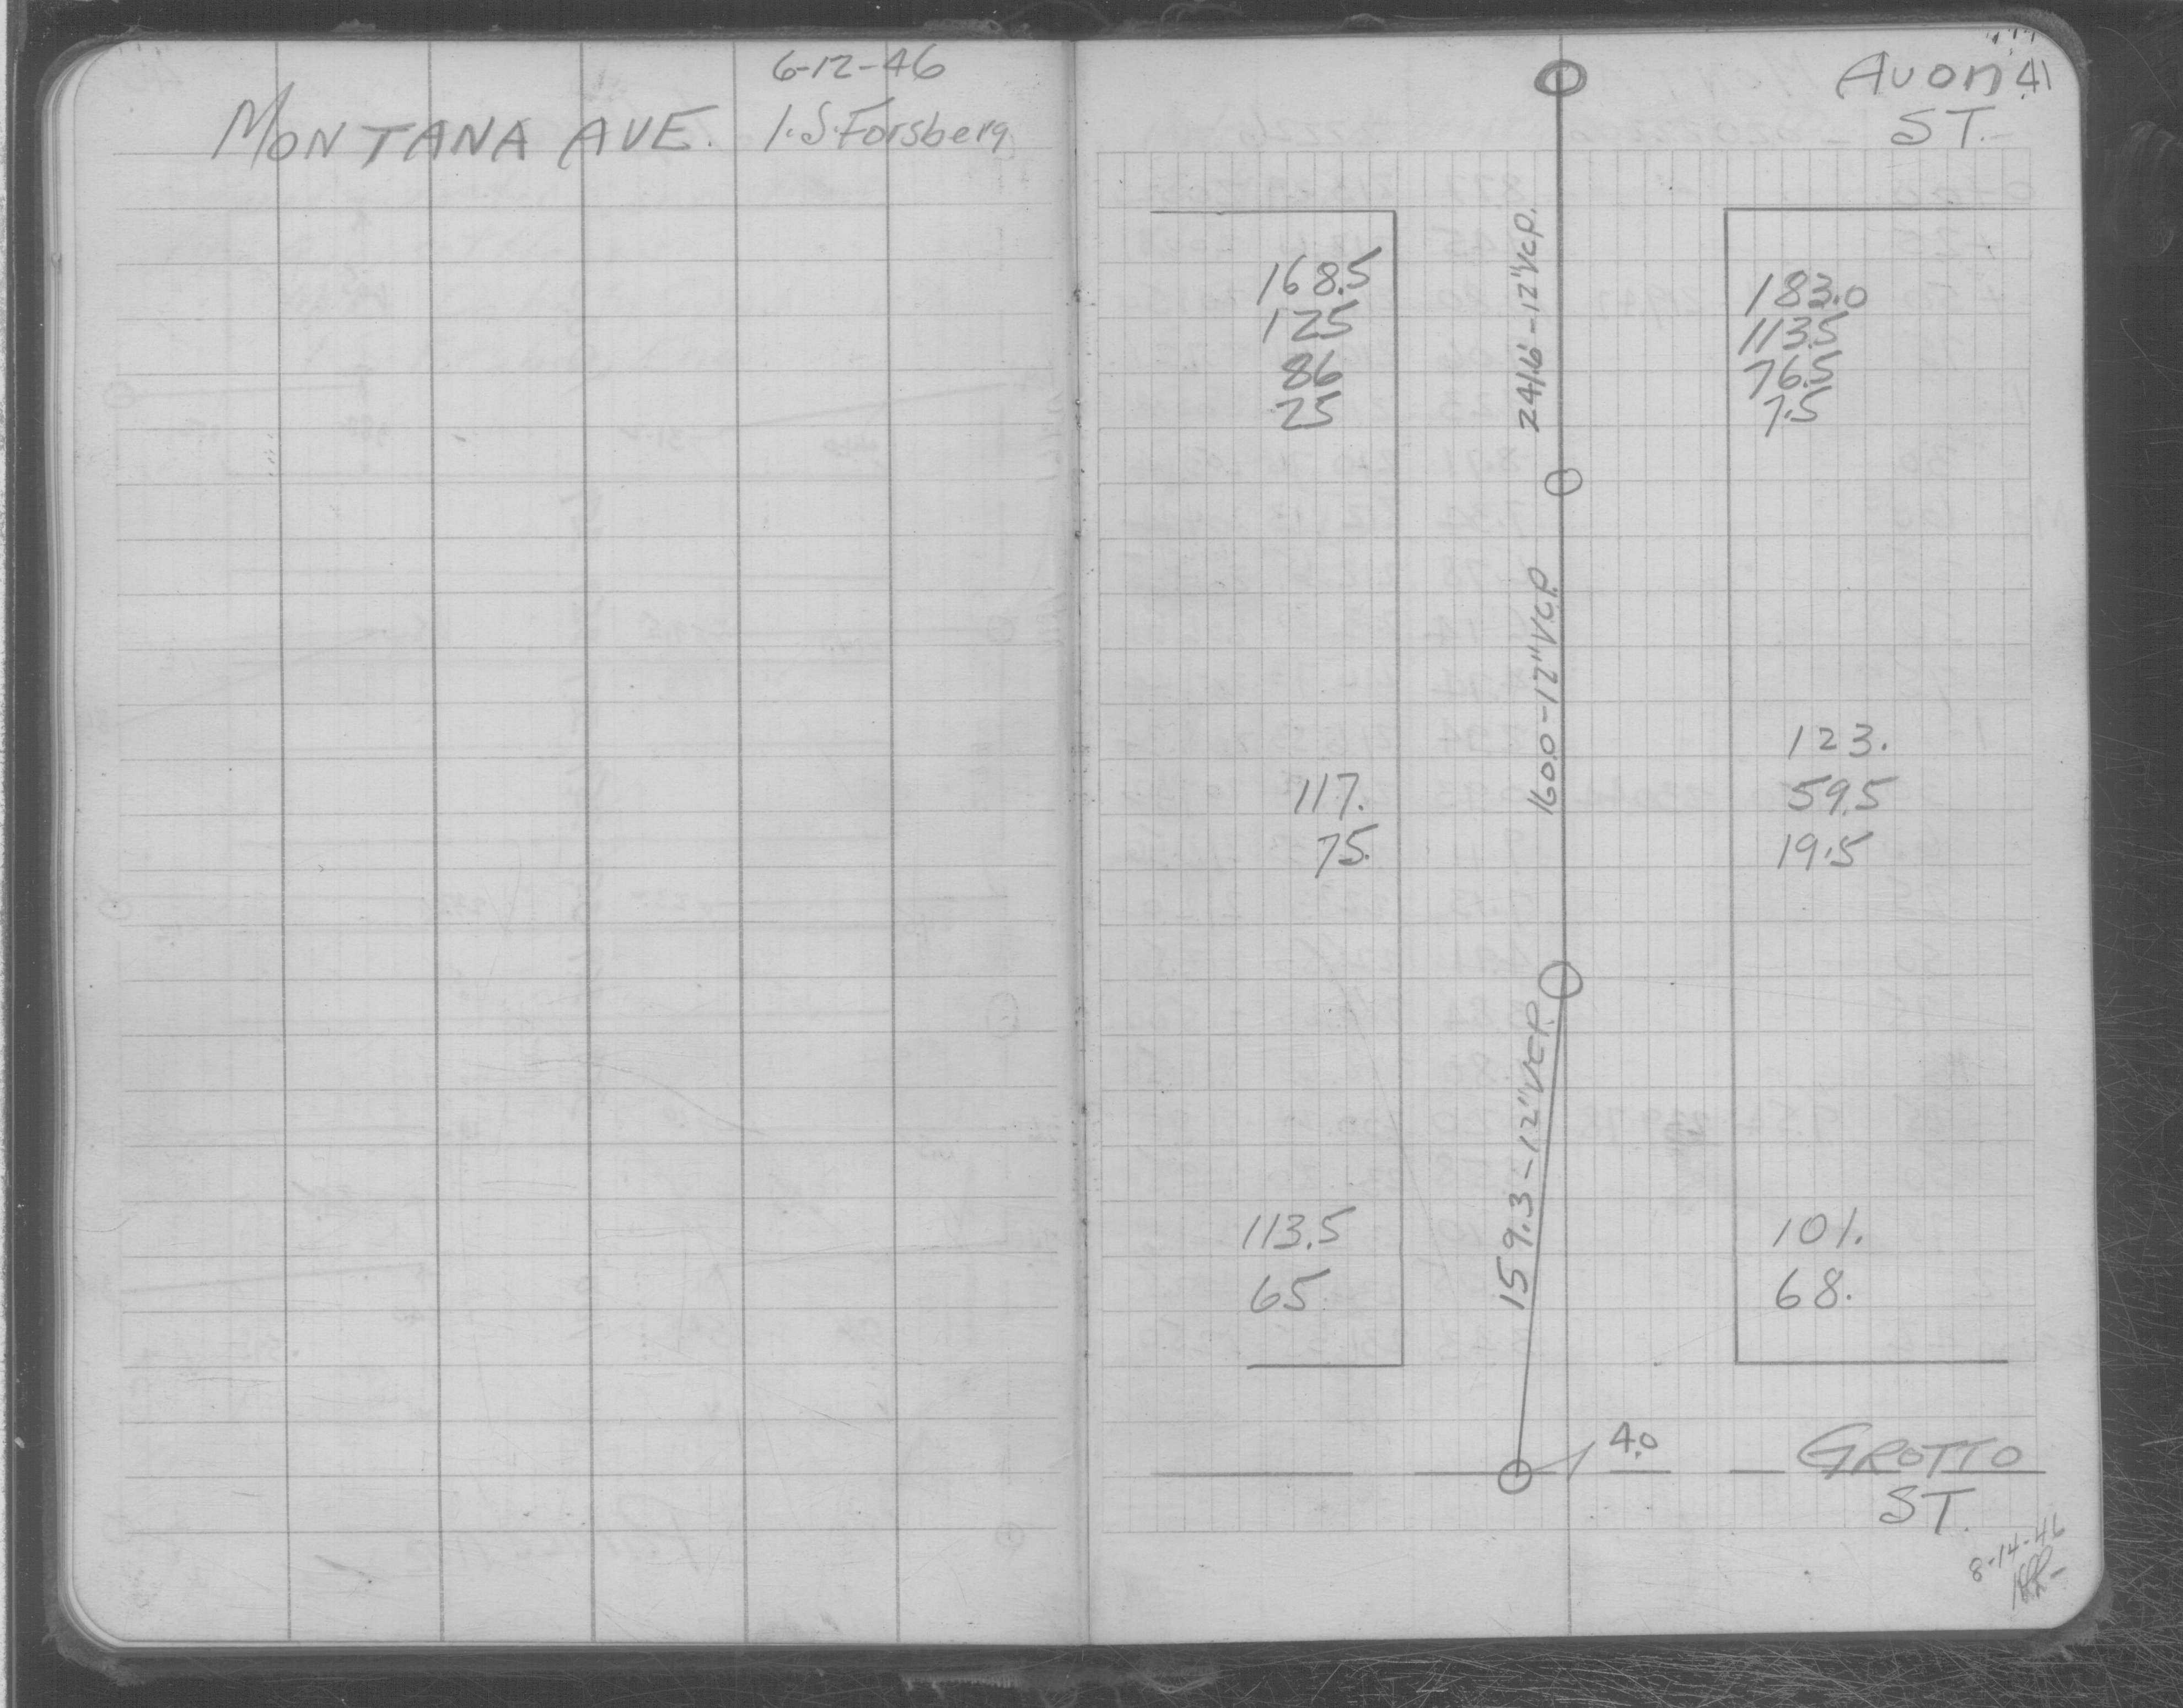 6-12-46
MONTANA AVE. I.S. Forsberg
Avon 41
ST.
168.5
125
86
25
241.6-12"V.C.P.
183.0
113.5
76.5
7.5
160.0-12"V.C.P.
117.
75.
123.
59.5
19.5
159.3-12"V.C.P.
113.5
65
101.
68.
4.0
GROTTO
ST.
8-14-46